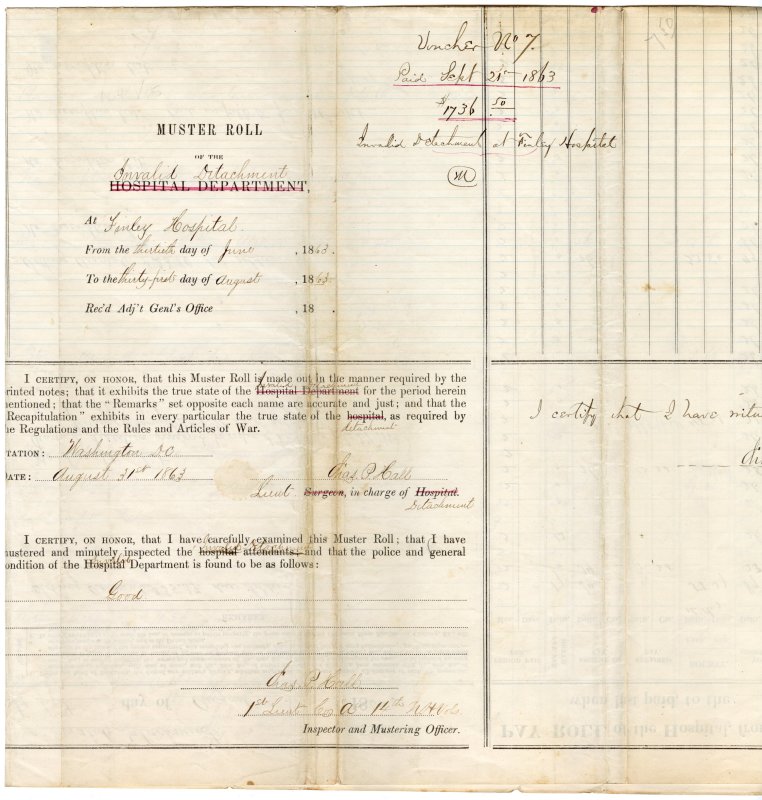 Voucher No 7.
Paid Sept 21st 1863
$1736 50
Invalid Detachment at Finley Hospital
M
MUSTER ROLL
OF THE
Invalid Detachment
HOSPITAL DEPARTMENT,
At Finley Hospital.
From the thirtieth day of June, 1863.
To the thirty-first day of August, 1863.
Rec'd Adj't Genl's Office , 18 .
I CERTIFY, ON HONOR, that this Muster Roll is made out in the manner required by the
printed notes; that it exhibits the true state of the Hospital Department for the period herein
mentioned; that the "Remarks" set opposite each name are accurate and just; and that the
"Recapitulation" exhibits in every particular the true state of the hospital, as required by
detachment
the Regulations and the Rules and Articles of War.
STATION: Washington D.C.
DATE: August 31st 1863
Chas. P. Hall
Lieut Surgeon, in charge of Hospital.
Detachment
I CERTIFY, ON HONOR, that I have carefully examined this Muster Roll; that I have
mustered and minutely inspected the hospital attendants; and that the police and general
condition of the Hospital Department is found to be as follows:
Good
Chas. P. Hall
1st Lieut Co A 14th N.H. Vol
Inspector and Mustering Officer.
I certify that I have
PAY ROLL of the Hospital, from
when last paid, to the